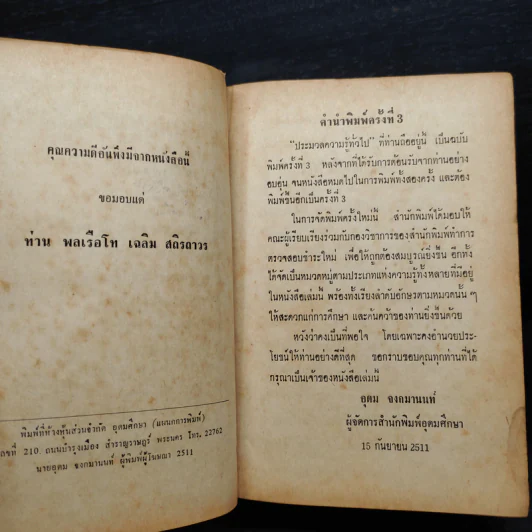 คุณความดีอันพึงมีจากหนังสือนี้
ขอมอบแด่
ท่าน พลเรือโท เฉลิม สถิรถาวร
พิมพ์ที่ห้างหุ้นส่วนจำกัด อุดมศึกษา (แผนกการพิมพ์)
เลขที่ 210 ถนนบำรุงเมือง สำราญราษฎร์ พระนคร โทร. 22762
นายอุดม จงถมานนท์ ผู้พิมพ์ผู้โฆษณา 2511
คำนำพิมพ์ครั้งที่ 3
"ประมวลความรู้ทั่วไป" ที่ท่านถืออยู่นี้ เป็นฉบับ
พิมพ์ครั้งที่ 3 หลังจากที่ได้รับการต้อนรับจากท่านอย่าง
อบอุ่น จนหนังสือหมดไปในการพิมพ์ทั้งสองครั้ง และต้อง
พิมพ์ขึ้นอีกเป็นครั้งที่ 3
ในการจัดพิมพ์ครั้งใหม่นี้ สำนักพิมพ์ได้มอบให้
คณะผู้เรียบเรียงร่วมกับกองวิชาการของสำนักพิมพ์ทำการ
ตรวจสอบชำระใหม่ เพื่อให้ถูกต้องสมบูรณ์ยิ่งขึ้น อีกทั้ง
ได้จัดเป็นหมวดหมู่ตามประเภทแห่งความรู้ทั้งหลายที่มีอยู่
ในหนังสือเล่มนี้ พร้องทั้งเรียงลำดับอักษรตามหมวดนั้น ๆ
ให้สะดวกแก่การศึกษา และค้นคว้าของท่านยิ่งขึ้นด้วย
หวังว่าคงเป็นที่พอใจ โดยเฉพาะคงอำนวยประ-
โยชน์ให้ท่านอย่างดีที่สุด ขอกราบขอบคุณทุกท่านที่ได้
กรุณาเป็นเจ้าของหนังสือเล่มนี้
อุดม จงถมานนท์
ผู้จัดการสำนักพิมพ์อุดมศึกษา
15 กันยายน 2511